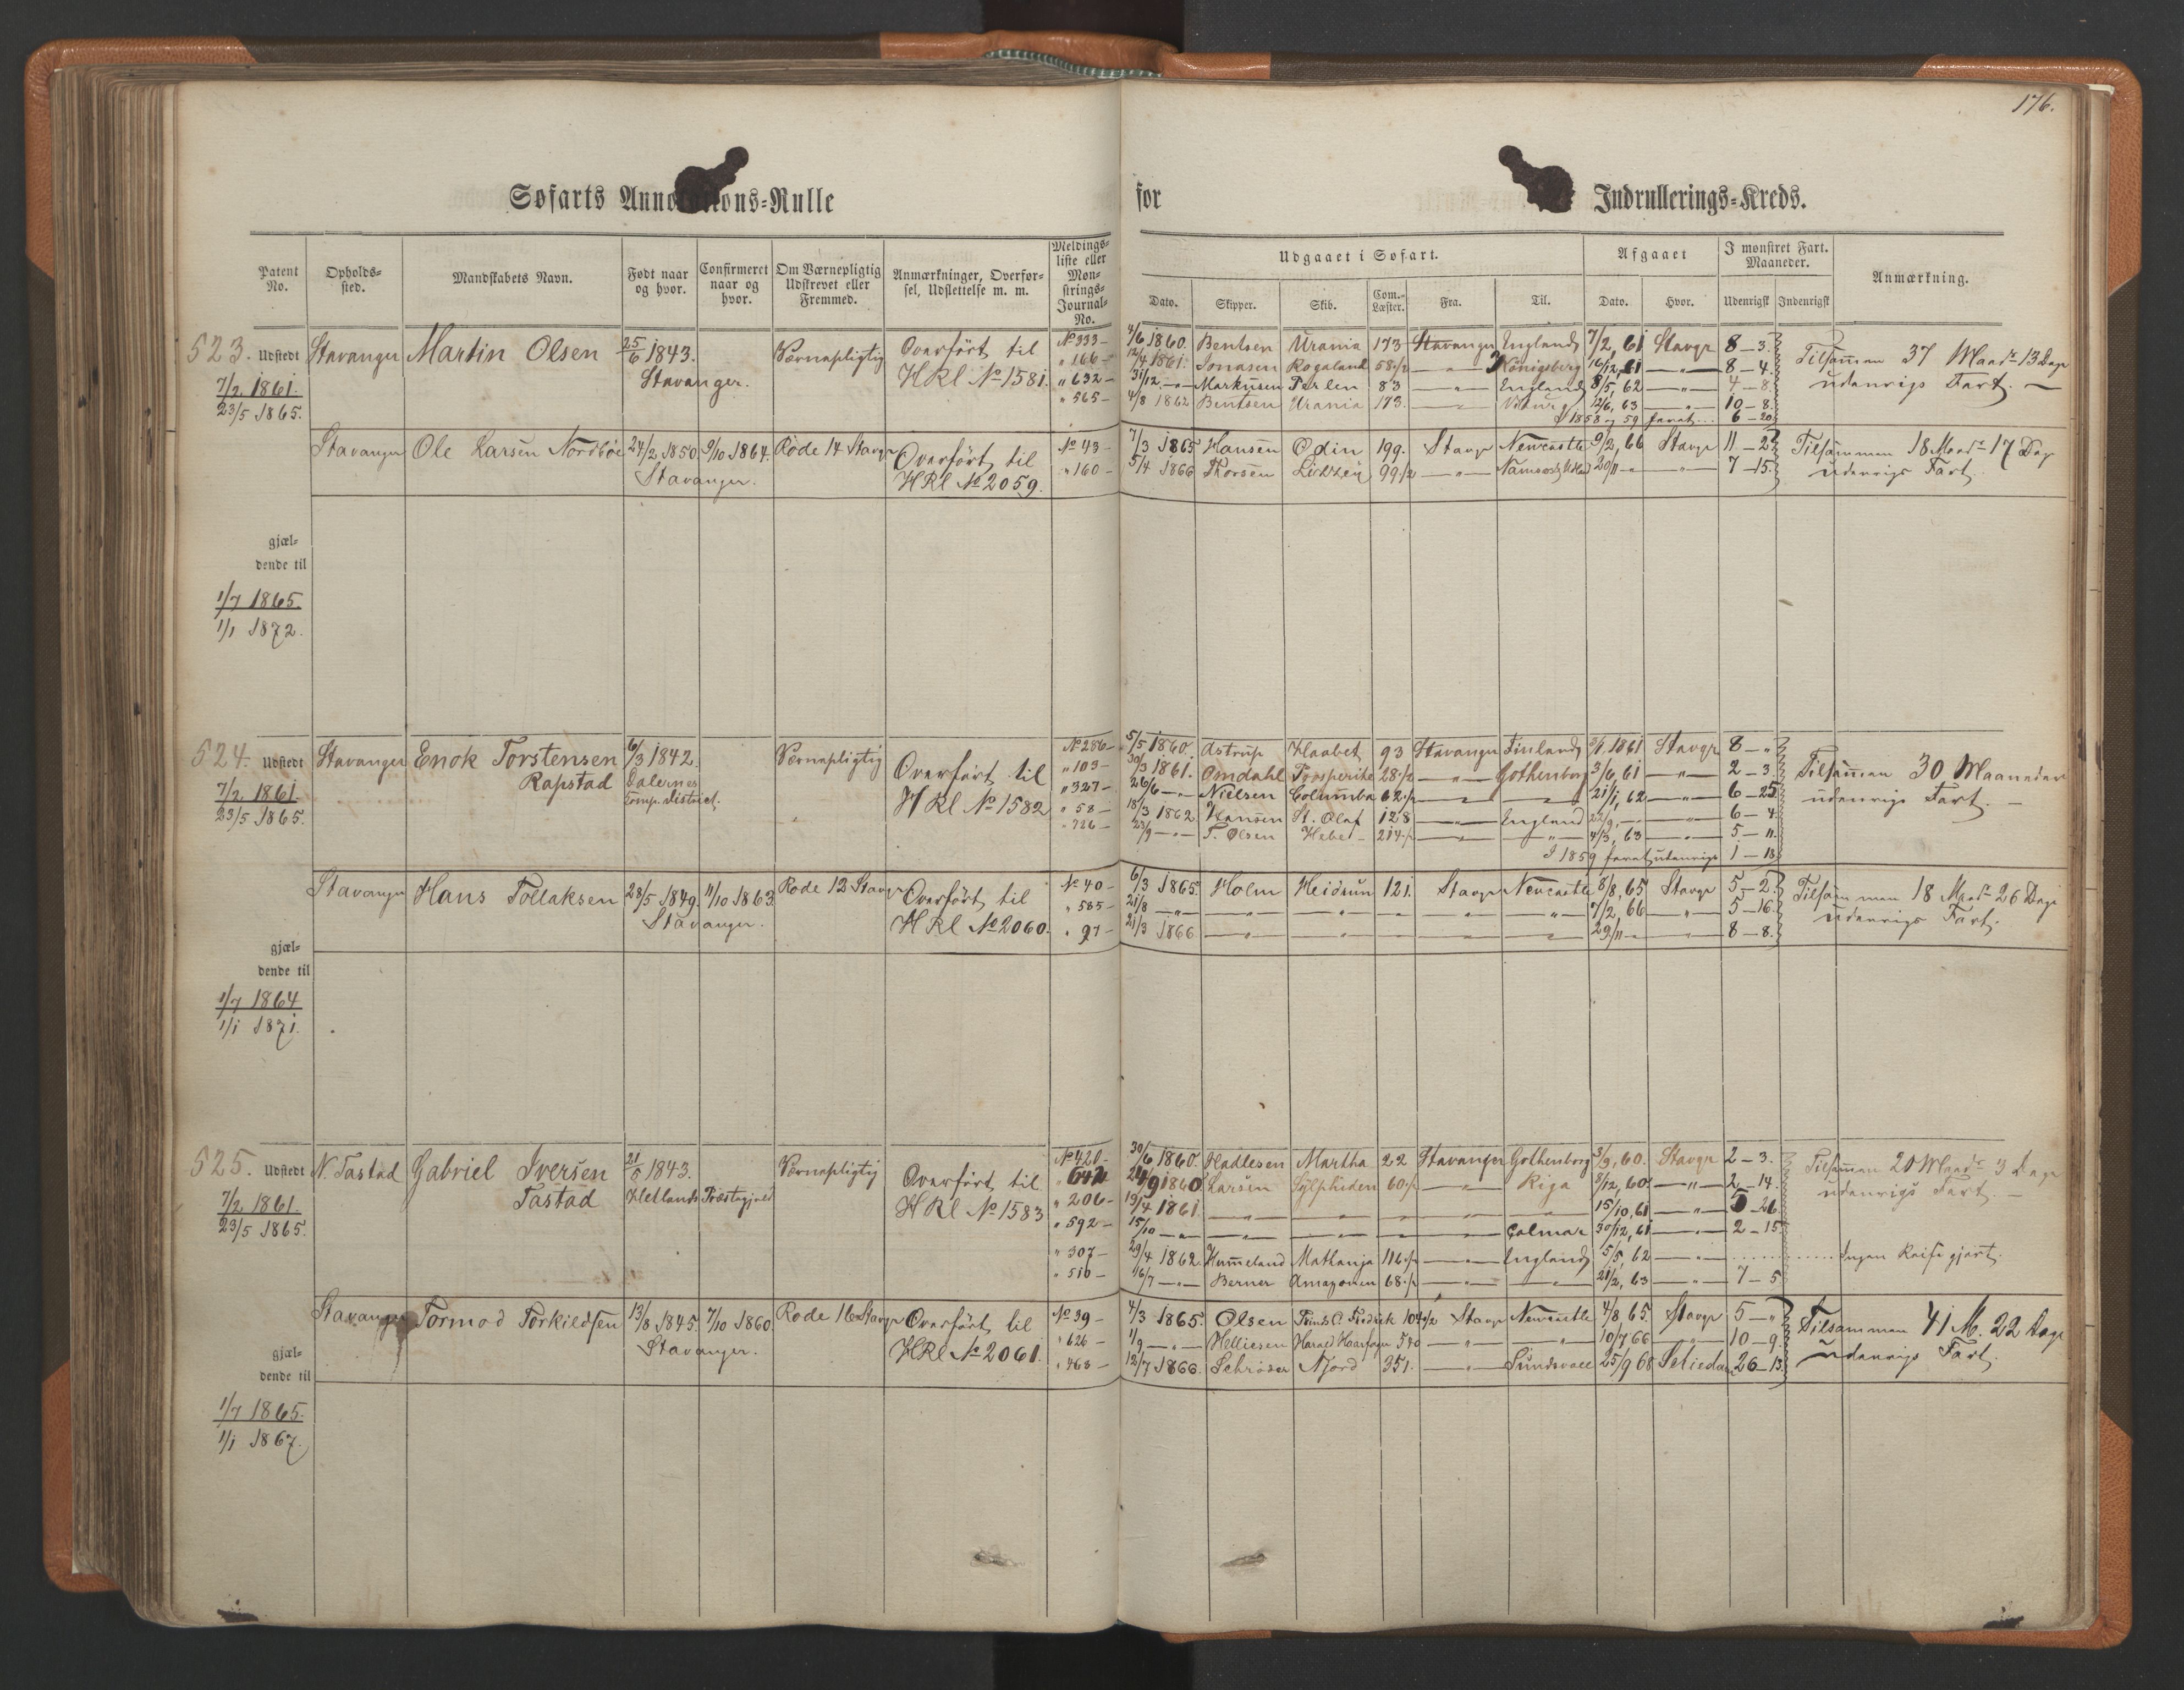 176.
Søfarts Annotations-Rulle for Indrullerings-Kreds.
Patent No. Opholds-sted. Mandskabets Navn. Født naar og hvor. Confirmeret naar og hvor. Om Værnepligtig Udskrevet eller Fremmed. Anmærkninger, Overfør-sel, Udslettelse m. m. Meldings-liste eller Møn-strings-Journal-No.
Udgaaet i Søfart. Afgaaet I mønstret Fart. Maaneder. Anmærkning.
Dato. Skipper. Skib. Com.-Læster. Fra. Til. Dato. Hvor. Udenrigsk Indenrigsk
523. Udstedt Stavanger Martin Olsen 25/6 1843. Værnepligtig Overført til № 333 – 4/6 1860. Bentsen Urania 173 Stavanger England 7/2, 61 Stavgr 8 – 3.
7/2 1861. Stavanger. HRl № 1581. " 166 – 12/4 1861. Jonasen Rogaland 58 1/2 – " – Königsberg 16/12, 61 – " – 8 – 4. Tilsammen 37 Maadr 13 Dage
23/5 1865. " 632 – 31/12 – " – Markusen Perlen 83 – " – England 8/5, 62 – " – 4 – 8 udenrigs Fart. –
" 565 – 4/8 1862 Bentsen Urania 173. 12/6, 63 – " – 10 – 8.
I 1858 og 59 faret... 6 – 20
Stavanger Ole Larsen Nordbøe 24/2 1850 9/10 1864. Rode 14 Stavgr Overført til № 43 – 7/3 1865 Hansen Odin 199. Stavgr Newcastle 9/2, 66 Stavgr 11 – 2 Tilsammen 18 Maadr 17 Dage
Stavanger. HRl № 2059. " 160 – 5/4 1866 Thorsen 99 1/2 – " – 20/11 – " – " – 7 – 15. udenrigs Fart.
gjæl-
dende til
1/7 1865.
1/1 1872.
524. Udstedt Stavanger Enok Torstensen 6/3 1842. Værnepligtig № 286 – 5/5 1860. Astrup Haabet 93 Stavanger Finland 3/1 1861 Stavgr 8 – "
7/2 1861. Rapstad Dalernes Overført til " 103 – 30/3 1861. Omdahl Prosperite 28 1/2 – " – Gothenborg 3/6, 61 – " – 2 – 3. Tilsammen 30 Maaneder
23/5 1865. Comp. district. HRl № 1582 " 327 – 26/6 – " – Nielsen Columba 62 1/2 – " – – " – 21/1, 62 – " – 6 – 25 udenrigs Fart. –
" 58 – 18/3 1862 Hansen St. Olaf 128 – " – England 22/9, – – " – 6 – 4.
" 726 – 23/9 – " – T. Olsen Hebe 214 1/2 – " – – " – 4/3, 63 – " – 5 – 11.
I 1859 faret udenrigs 1 – 18
Stavanger Hans Tollaksen 28/5 1849. 11/10 1863 Rode 12 Stavgr Overført til № 40 – 6/3 1865. Holm Heidrun 121. Stavgr Newcastle 8/8, 65 Stavgr 5 – 2. Tilsammen 18 Maadr 26 Dage
Stavanger. HRl № 2060. " 585 – 21/8 – " – – " – – " – – " – – " – 7/2, 66 – " – 5 – 16. udenrigs Fart.
" 97 – 21/3 1866 – " – – " – – " – – " – 29/11 – " – " – 8 – 8.
gjæl-
dende til
1/7 1864
1/1 1871.
525. Udstedt N. Tastad Gabriel Iversen 21/5 1843. Værnepligtig № 420 – 30/6 1860. Hadlesen Martha 22 Stavanger Gothenborg 3/9, 60. Stavgr 2 – 3.
7/2 1861. Tastad Hetlands Præstegjeld Overført til " 642 24/9 1860 Larsen Sylpheden 60 1/2 – " – Riga 8/12, 60 – " – 2 – 14. Tilsammen 20 Maadr 3 Dage
23/5 1865. HRl № 1583 " 206 – 19/4 1861. – " – – " – – " – – " – 15/10, 61 – " – 5 – 26 udenrigs Fart. –
" 592 – 15/10 – " – – " – – " – – " – Calmar 30/12, 61 – " – 2 – 15
" 307 – 29/4 1862 Hummeland Nathanja 116 1/2 – " – England 5/5, 62 – " – ........ Ingen Reise gjort.
" 510 – 16/7 – " – Berner Amazonen 68 1/2 – " – – " – 21/2, 63 – " – 7 – 5
Stavanger Tormod Torkildsen 13/8 1845. 7/10 1860 Rode 16 Stavgr Overført til № 39 – 4/3 1865. Olsen Prinds C. Fredrik 104 1/2 Stavgr Newcastle 4/8, 65. Stavgr 5 – " Tilsammen 41 M. 22 Dage
Stavanger. HRl № 2061. " 626 – 1/9 – " – Helliesen Harald Haarfager 340 – " – – " – 10/7 66 – " – 10 – 9. udenrigs Fart.
" 463 – 12/7 1866. Schrøder Njord 351. – " – Sundsvall 25/9 68 26 – 13.
gjæl-
dende til
1/7 1865.
1/1 1867.